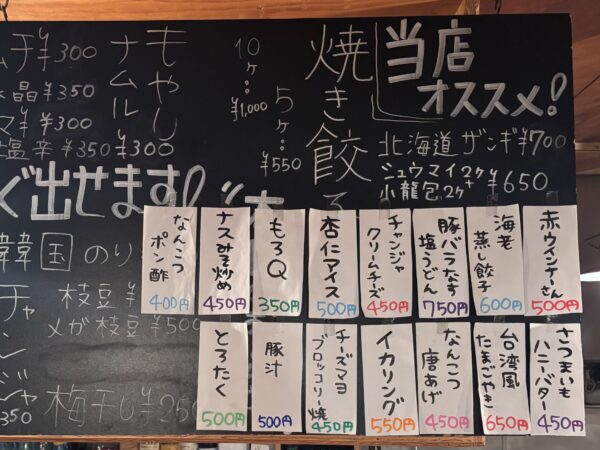 当店
オススメ!
北海道ザンギ¥700
シュウマイ2ケ+
小龍包2ケ ¥650
焼き餃子
5ケ…¥550
10ケ…¥1,000
もやし
ナムル
¥300
¥300
水晶¥350
¥300
塩辛¥350
ぐ出せます!
韓国のり
枝豆¥
メガ枝豆¥500
梅干し¥250
350
赤ウインナーさん
500円
海老
蒸し餃子
600円
豚バラなす
塩うどん
750円
チャンジャ
クリームチーズ
450円
杏仁アイス
500円
もろQ
350円
ナスみそ炒め
450円
なんこつ
ポン酢
400円
さつまいも
ハニーバター
450円
台湾風
たまごやき
650円
なんこつ
唐あげ
450円
イカリング
550円
チーズマヨ
ブロッコリー焼
450円
豚汁
500円
とろたく
500円